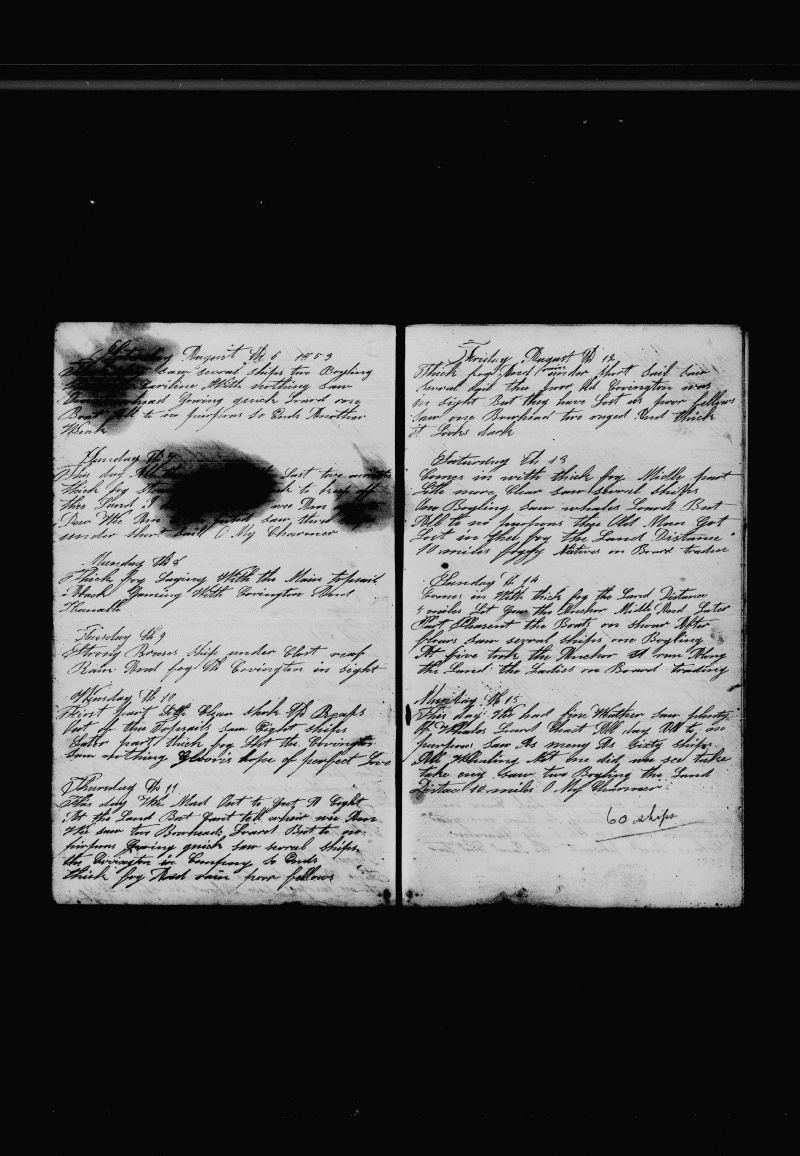 Saturday August th 6 1853
saw several ships two Boyling
With nothing saw
Bowhead Going quick Loard one
Boat All to no purpose so Ends Another
Weak
Sunday th 7
This day All Last two
thick fog to keep of
thee Land
Dew We Are saw three
under short sail O My Charmer
Munday th 8
Thick fog Laying With the Main topsail
Aback Gaming With Covington And
Thursday th 9
Strong Breeses Ship under Clost reaf
Rain And fog th Covington in sight
Wensday th 10
First part Little Clear shook th Reafs
Out of the Topsails saw Eight ships
Later part thick fog Lost the Covington
saw nothing Glooris hope of perfect Love
Thursday th 11
This day We Mad Out to Get A Sight
At the Land But Cant tell whair we Are
We saw two Bowheads Loard But to no
purpose Gowing quick saw several ships
the Covington in Company so Ends
thick fog And rain poor fellows
Friday August th 12
Thick fog And rain under short sail saw
several sail thee poor old Covington was
in sight But they have Lost us poor fellows
saw one Bowhead two raged And thick
it Looks dark
Saturday th 13
Comes in with thick fog Midle part
Little more Clear saw several ships
One Boyling saw whales Loard But
All to no purpose thee Old Man Got
Lost in thee fog the Land Distance
10 miles foggy Natives on Board tradin
Sunday th 14
Comes in With thick fog the Land Distance
4 miles Let Gow the Anchor Midle And Later
Part Pleasent the Boats on shoar After
flours saw several ships one Boyling
At five took the Anchor & run Along
the Land the Ladies on Board trading
Munday th 15
This day We had fine Weather saw plenty
Of Whales Loard Chast All day All to no
purpose saw As meny As Sixty ships
All Whaleing Not one did we see take
take eny saw two Boyling the Land
Distance 10 miles O My Charmer
60 ships